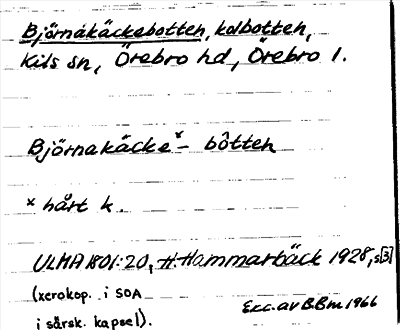 Björnakäckebotten, kolbotten,
Kils sn, Örebro hd, Örebro l.
Björnakäcke*- bòtten
* hårt k.
ULMA 1801:20, H. Hammarbäck 1928, s[3]
(xerokop. i SOA
i särsk. kapsel).
Exc. av BBm 1966